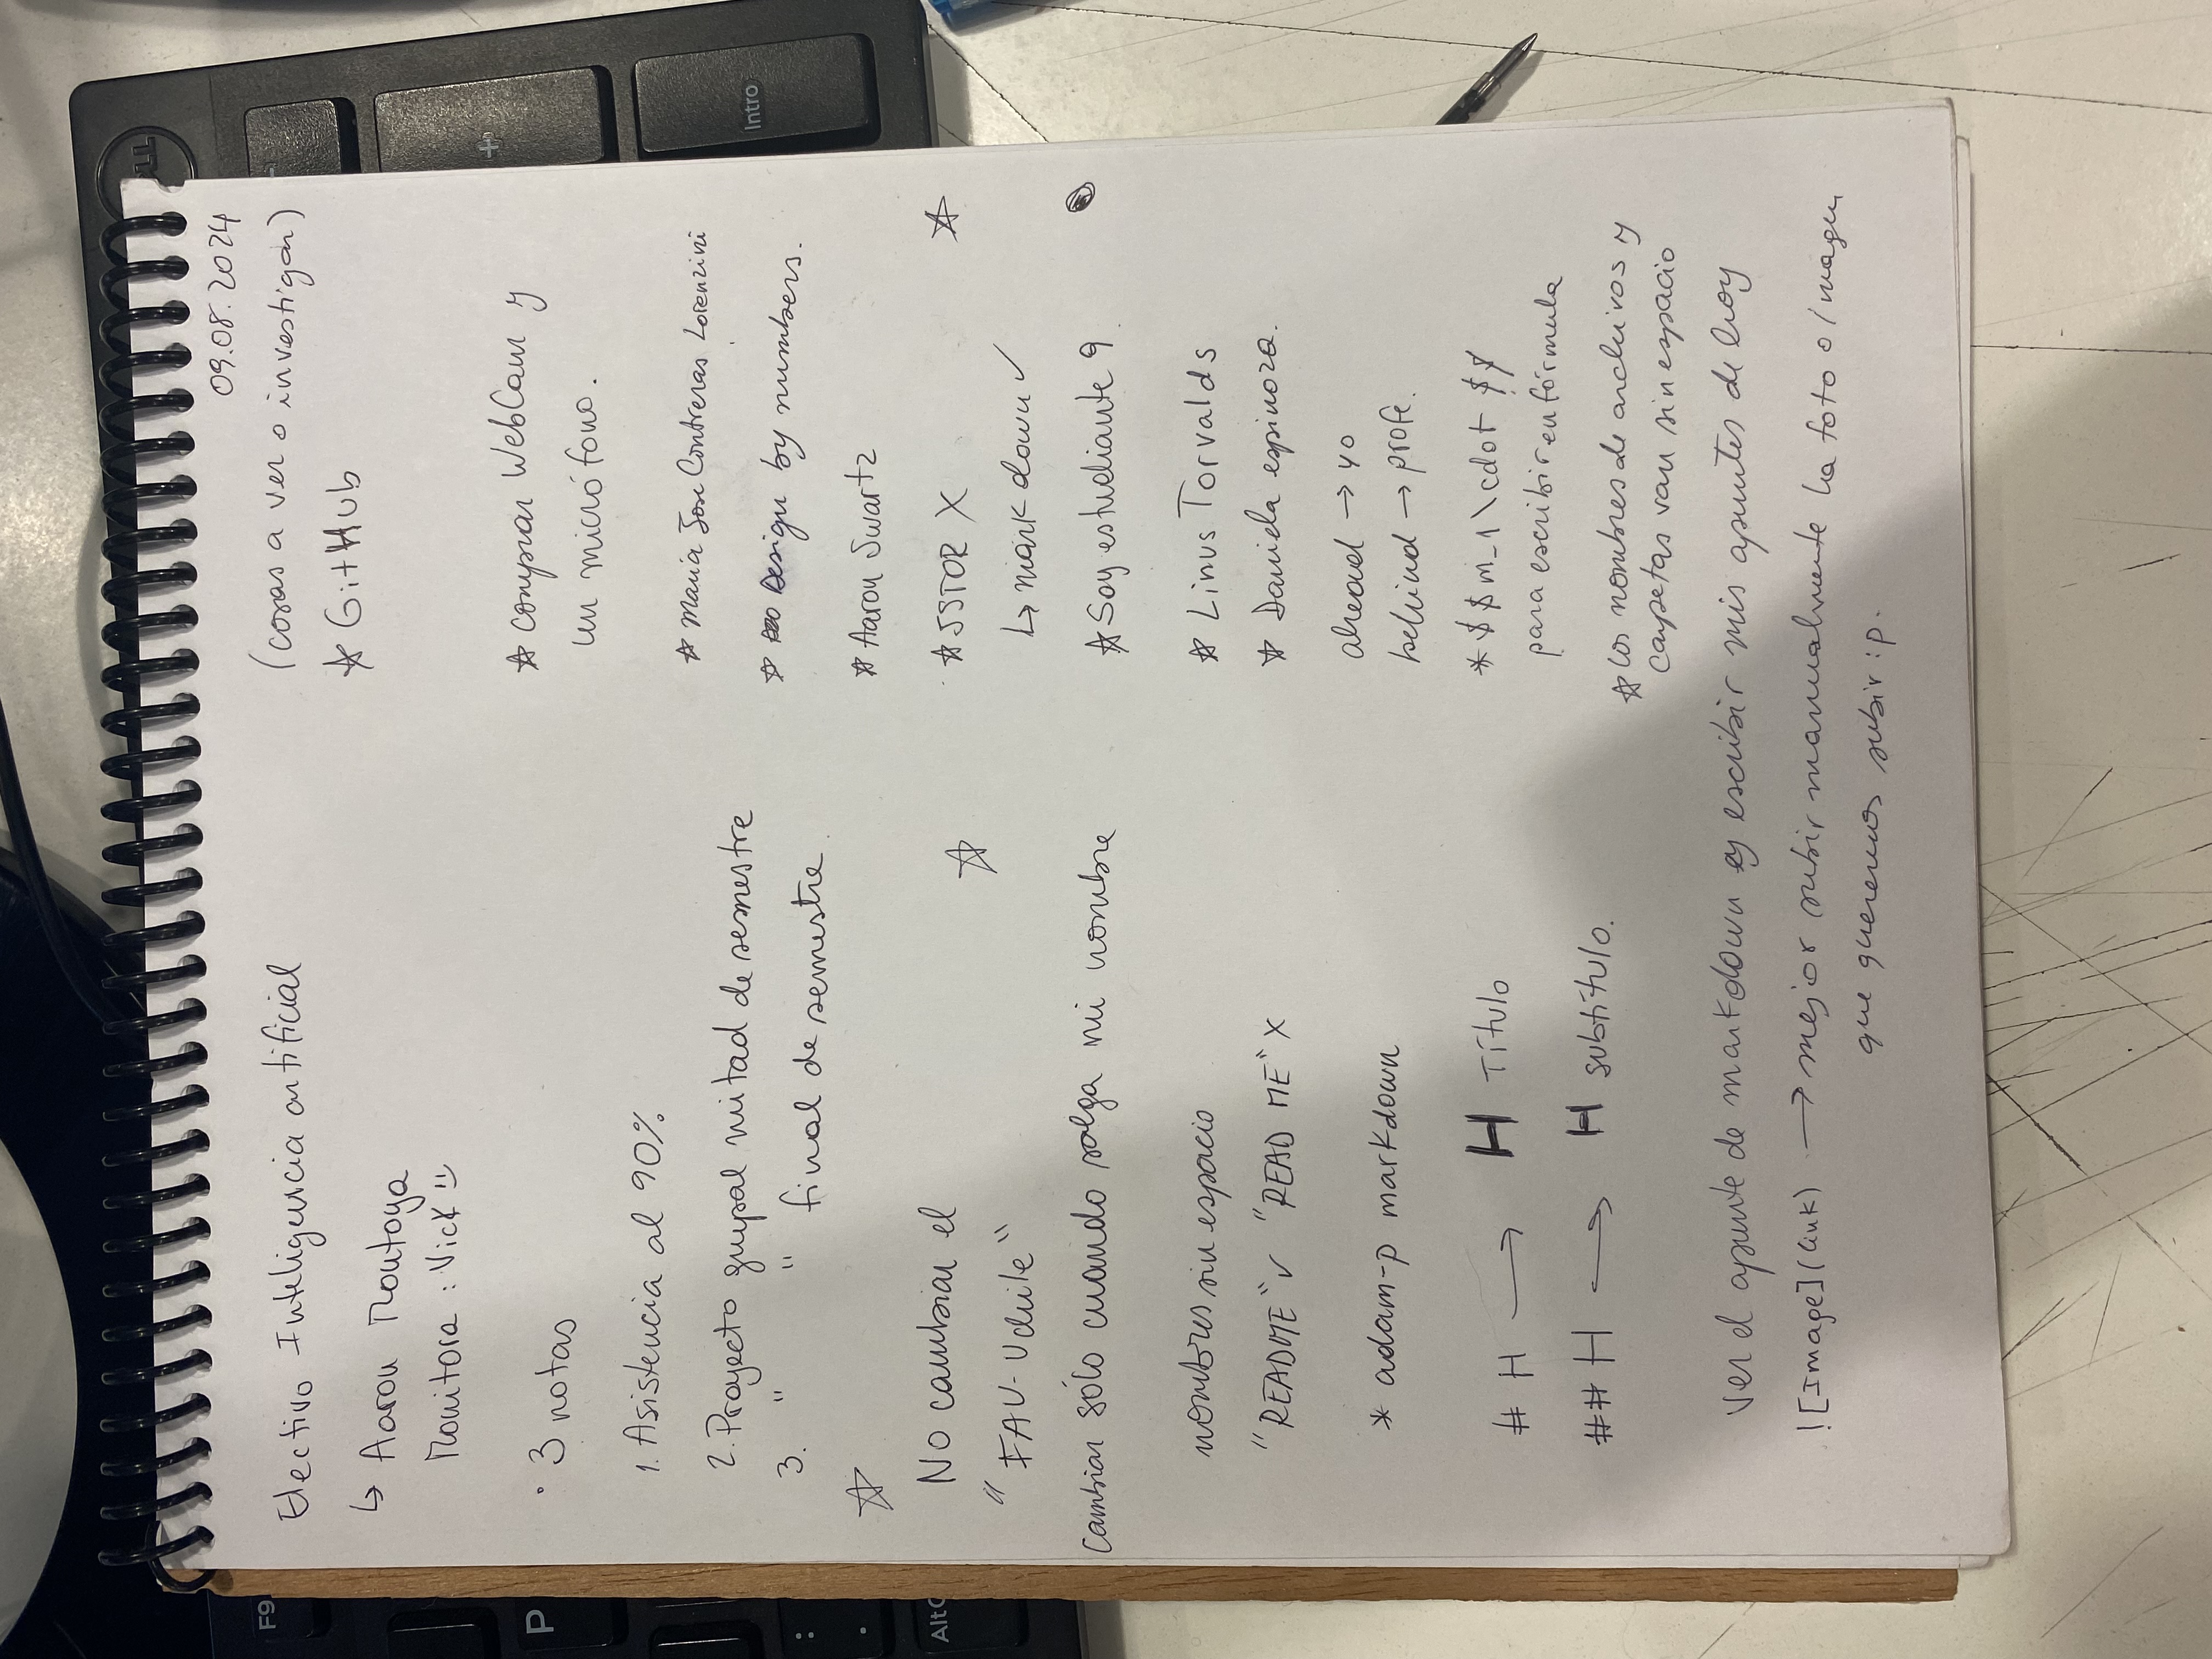 09.08.2024
Electivo Inteligencia artificial
↳ Aaron Montoya
Monitora : Vick
• 3 notas
1. Asistencia al 90%
2. Proyecto grupal mitad de semestre
3. " " final de semestre
☆
No cambiar el
"FAV-Uchile"
☆
Cambiar sólo cuando salga mi nombre
nombres sin espacio
"README" ✓ "READ ME" X
* adam-p markdown
# H → H Título
## H → H subtítulo.
(cosas a ver o investigar)
☆ GitHub
☆ comprar WebCam y
un micrófono.
☆ maria Jose Contreras Lorenzini
☆ Design by numbers.
☆ Aaron Swartz
☆ JSTOR X
☆
↳ markdown ✓
☆ Soy estudiante 9
☆ Linus Torvalds
☆ Daniela espinoza.
ahead → yo
behind → profe.
* $$m_1\cdot $$
para escribir en fórmula
☆ los nombres de archivos y
carpetas van sin espacio
ver el apunte de markdown y escribir mis apuntes de hoy
![Image](link) → mejor subir manualmente la foto o imagen
que queremos subir :p.
F9
P
:
.
Alt
+
Intro